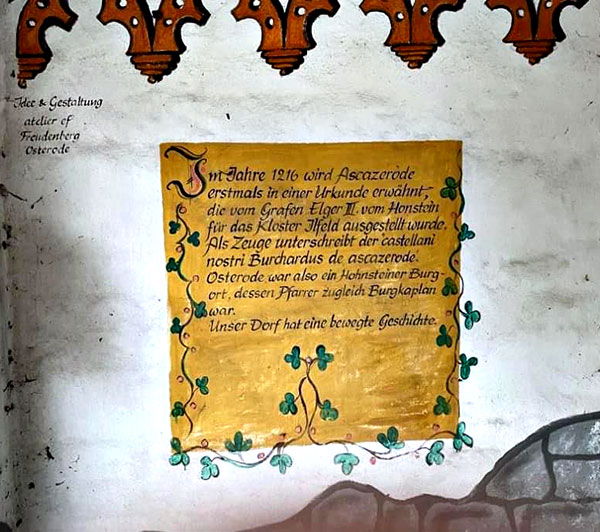 Idee & Gestaltung
atelier ef
Freudenberg
Osterode
Im Jahre 1216 wird Ascazeròde
erstmals in einer Urkunde erwähnt,
die vom Grafen Elger III. vom Honstein
für das Kloster Ilfeld ausgestellt wurde.
Als Zeuge unterschreibt der castellani
nostri Burchardus de ascazerode.
Osterode war also ein Hohnsteiner Burg-
ort, dessen Pfarrer zugleich Burgkaplan
war.
Unser Dorf hat eine bewegte Geschichte.